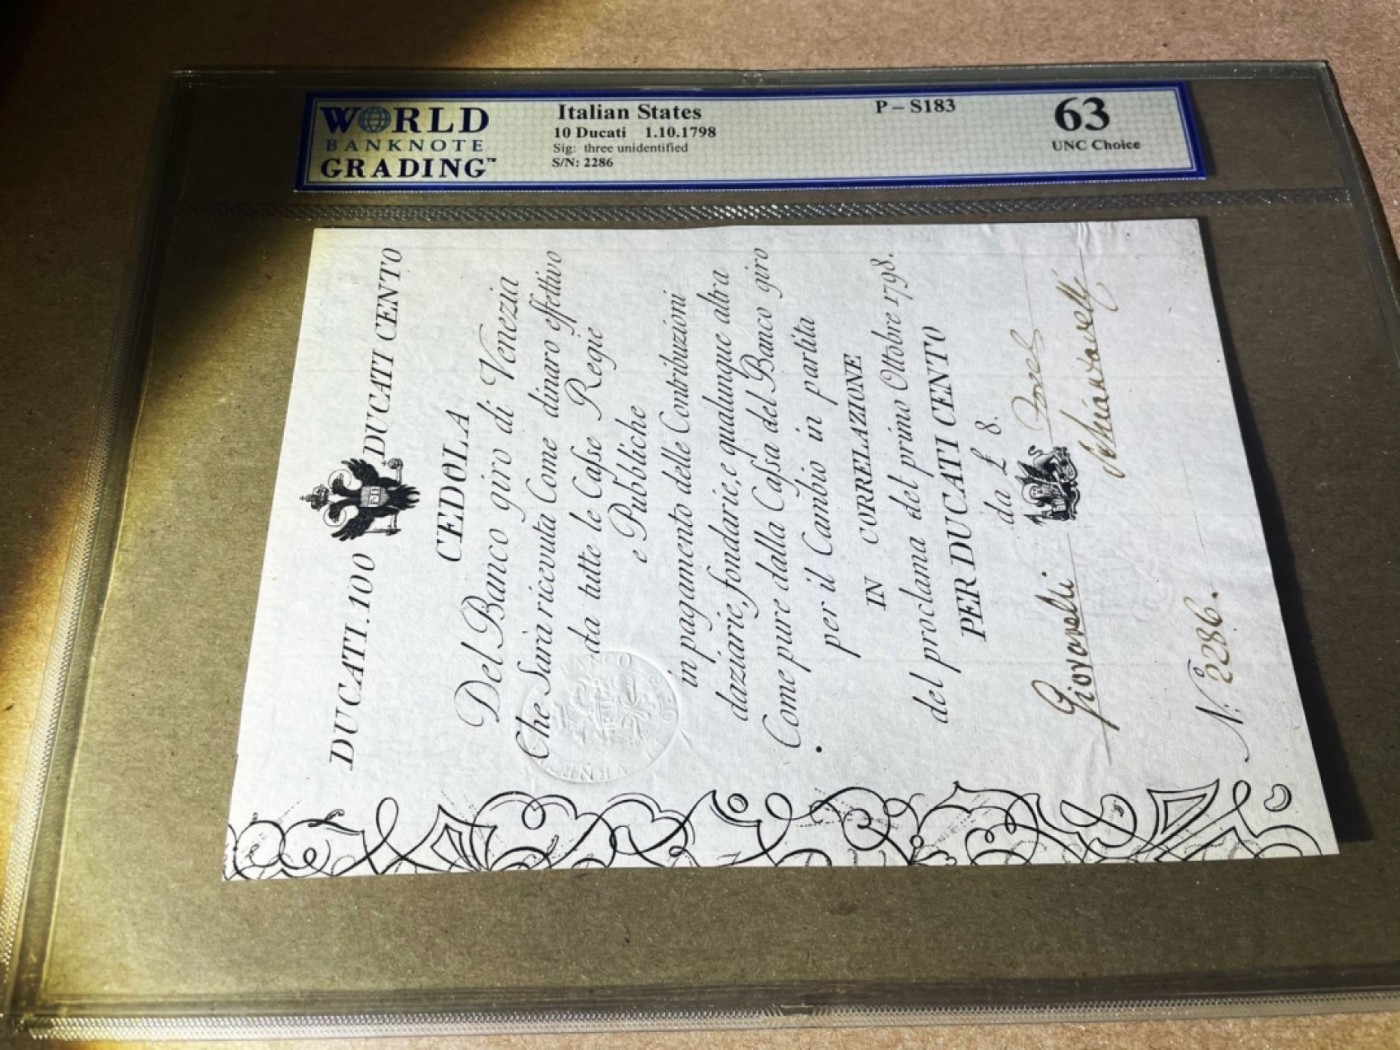 WORLD
BANKNOTE
GRADING™
Italian States
10 Ducati 1.10.1798
Sig: three unidentified
S/N: 2286
P – S183
63
UNC Choice
DUCATI.100 DUCATI CENTO
CEDOLA
Del Banco giro di Venezia
Che Sarà ricevuta Come dinaro effettivo
da tutte le Casse Regie
e Pubbliche
in pagamento delle Contribuzioni
daziarie, fondarie, e qualunque altra
Come pure dalla Cassa del Banco giro
per il Cambio in partita
IN CORRELAZIONE
del proclama del primo Ottobre 1798.
PER DUCATI CENTO
da £ 8.
Giovanelli
Schiantarelli
N.º 2286.
BANCO